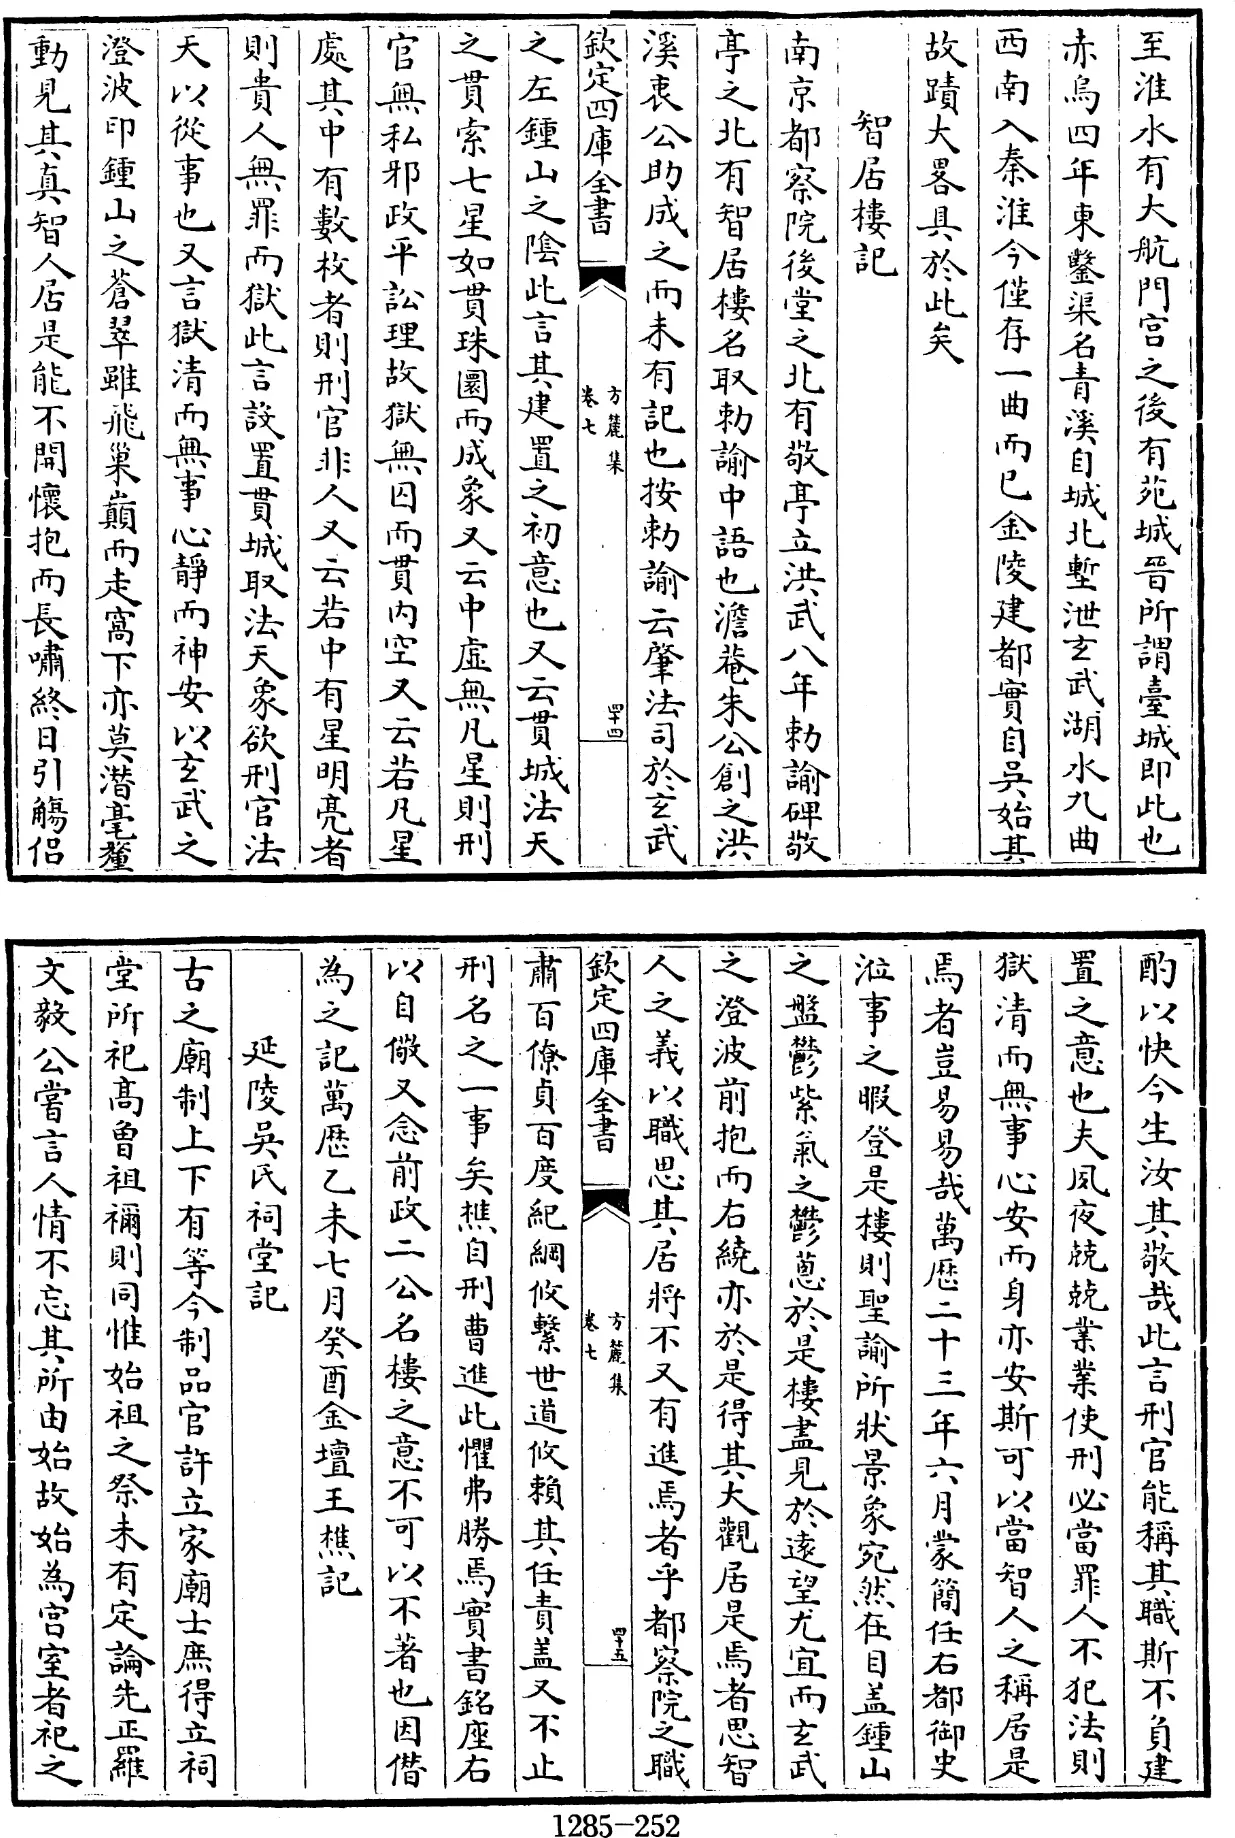 至淮水有大航門宫之後有苑城晉所謂臺城即此也
赤烏四年東鑿渠名青溪自城北塹泄玄武湖水九曲
西南入秦淮今僅存一曲而已金陵建都實自吳始其
故蹟大畧具於此矣
智居樓記
南京都察院後堂之北有敬亭立洪武八年勅諭碑敬
亭之北有智居樓名取勅諭中語也澹菴朱公創之洪
溪衷公助成之而未有記也按勅諭云肇法司於玄武
欽定四庫全書
方麓集
卷七
四十四
之左鍾山之陰此言其建置之初意也又云貫城法天
之貫索七星如貫珠圜而成象又云中虛無凡星則刑
官無私邪政平訟理故獄無囚而貫内空又云若凡星
處其中有數枚者則刑官非人又云若中有星明亮者
則貴人無罪而獄此言設置貫城取法天象欲刑官法
天以從事也又言獄清而無事心靜而神安以玄武之
澄波印鍾山之蒼翠雖飛巢巔而走窩下亦莫潛毫釐
動見其真智人居是能不開懷抱而長嘯終日引觴侣
酌以快今生汝其敬哉此言刑官能稱其職斯不負建
置之意也夫夙夜兢兢業業使刑必當罪人不犯法則
獄清而無事心安而身亦安斯可以當智人之稱居是
焉者豈易易哉萬歴二十三年六月蒙簡任右都御史
涖事之暇登是樓則聖諭所狀景象宛然在目盖鍾山
之盤鬱紫氣之鬱蔥於是樓盡見於遠望尤宜而玄武
之澄波前抱而右繞亦於是得其大觀居是焉者思智
人之義以職思其居將不又有進焉者乎都察院之職
欽定四庫全書
方麓集
卷七
四十五
肅百僚貞百度紀綱攸繫世道攸賴其任責盖又不止
刑名之一事矣樵自刑曹進此懼弗勝焉實書銘座右
以自儆又念前政二公名樓之意不可以不著也因僣
為之記萬歴乙未七月癸酉金壇王樵記
延陵吳氏祠堂記
古之廟制上下有等今制品官許立家廟士庶得立祠
堂所祀高曾祖禰則同惟始祖之祭未有定論先正羅
文毅公嘗言人情不忘其所由始故始為宫室者祀之
1285-252